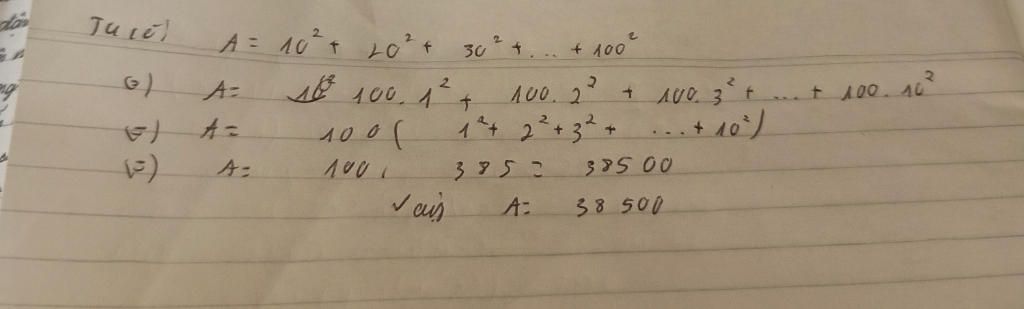 Ta có:
A = 10² + 20² + 30² + ... + 100²
⇔) A = 100.1² + 100.2² + 100.3² + ... + 100.10²
⇔) A = 100( 1² + 2² + 3² + ... + 10²)
⇔) A = 100. 385 = 38500
Vậy A = 38 500